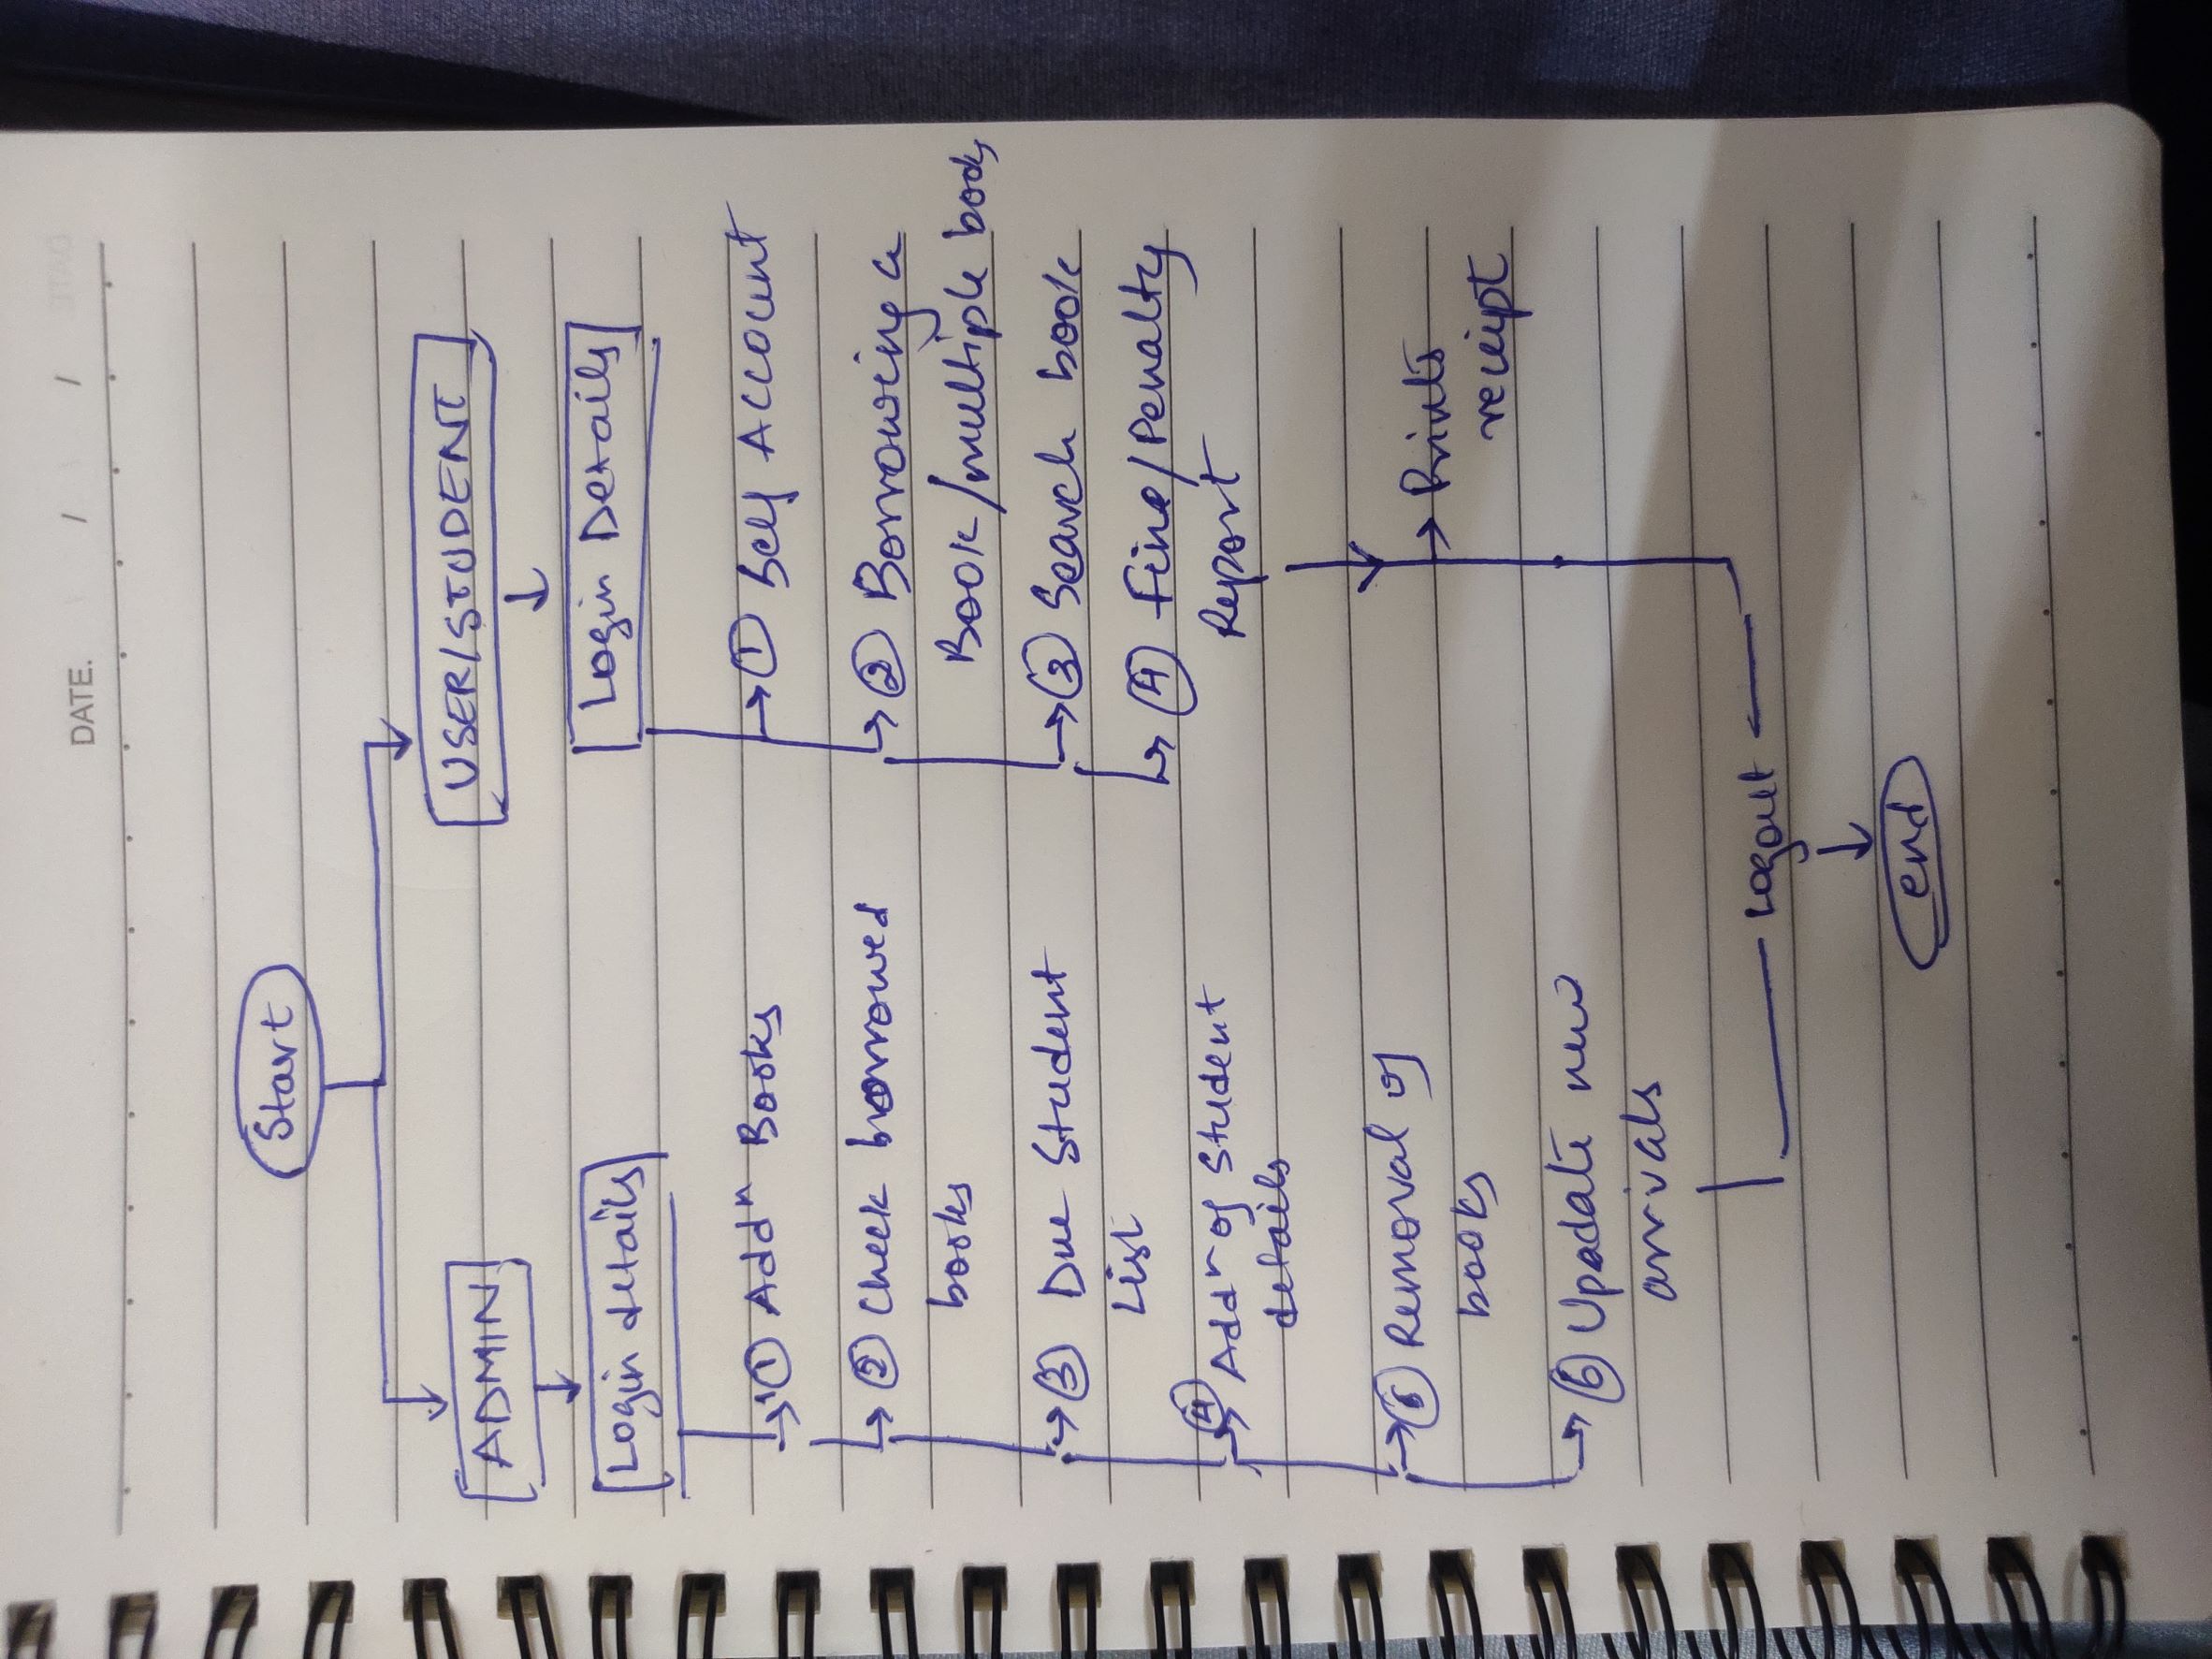 DATE. / /
Start
ADMIN
USER/STUDENT
Login details
Login Details
① Addn Books
② Check borrowed
books
③ Due Student
List
④ Addn of Student
details
⑤ Removal of
books
⑥ Update new
arrivals
① Self Account
② Borrowing a
Book/multiple books
③ Search book
④ Fine/Penalty
Report
Prints
receipt
Logout
end